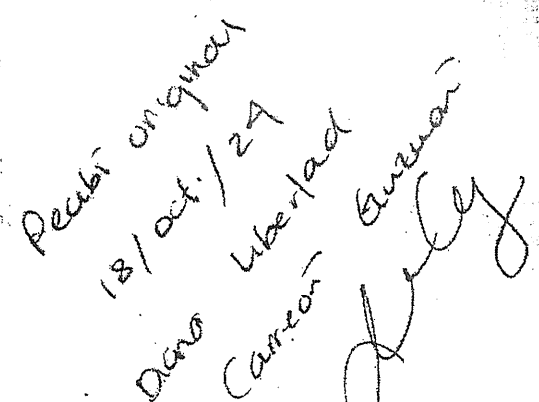 Recibi original
18/oct./24
Diana Liberlad
Carreón Guzmán